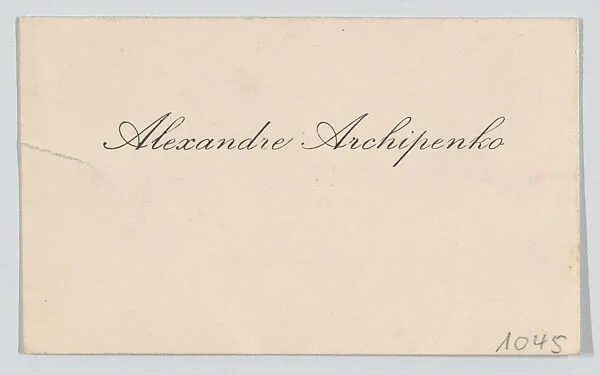 Alexandre Archipenko
1045